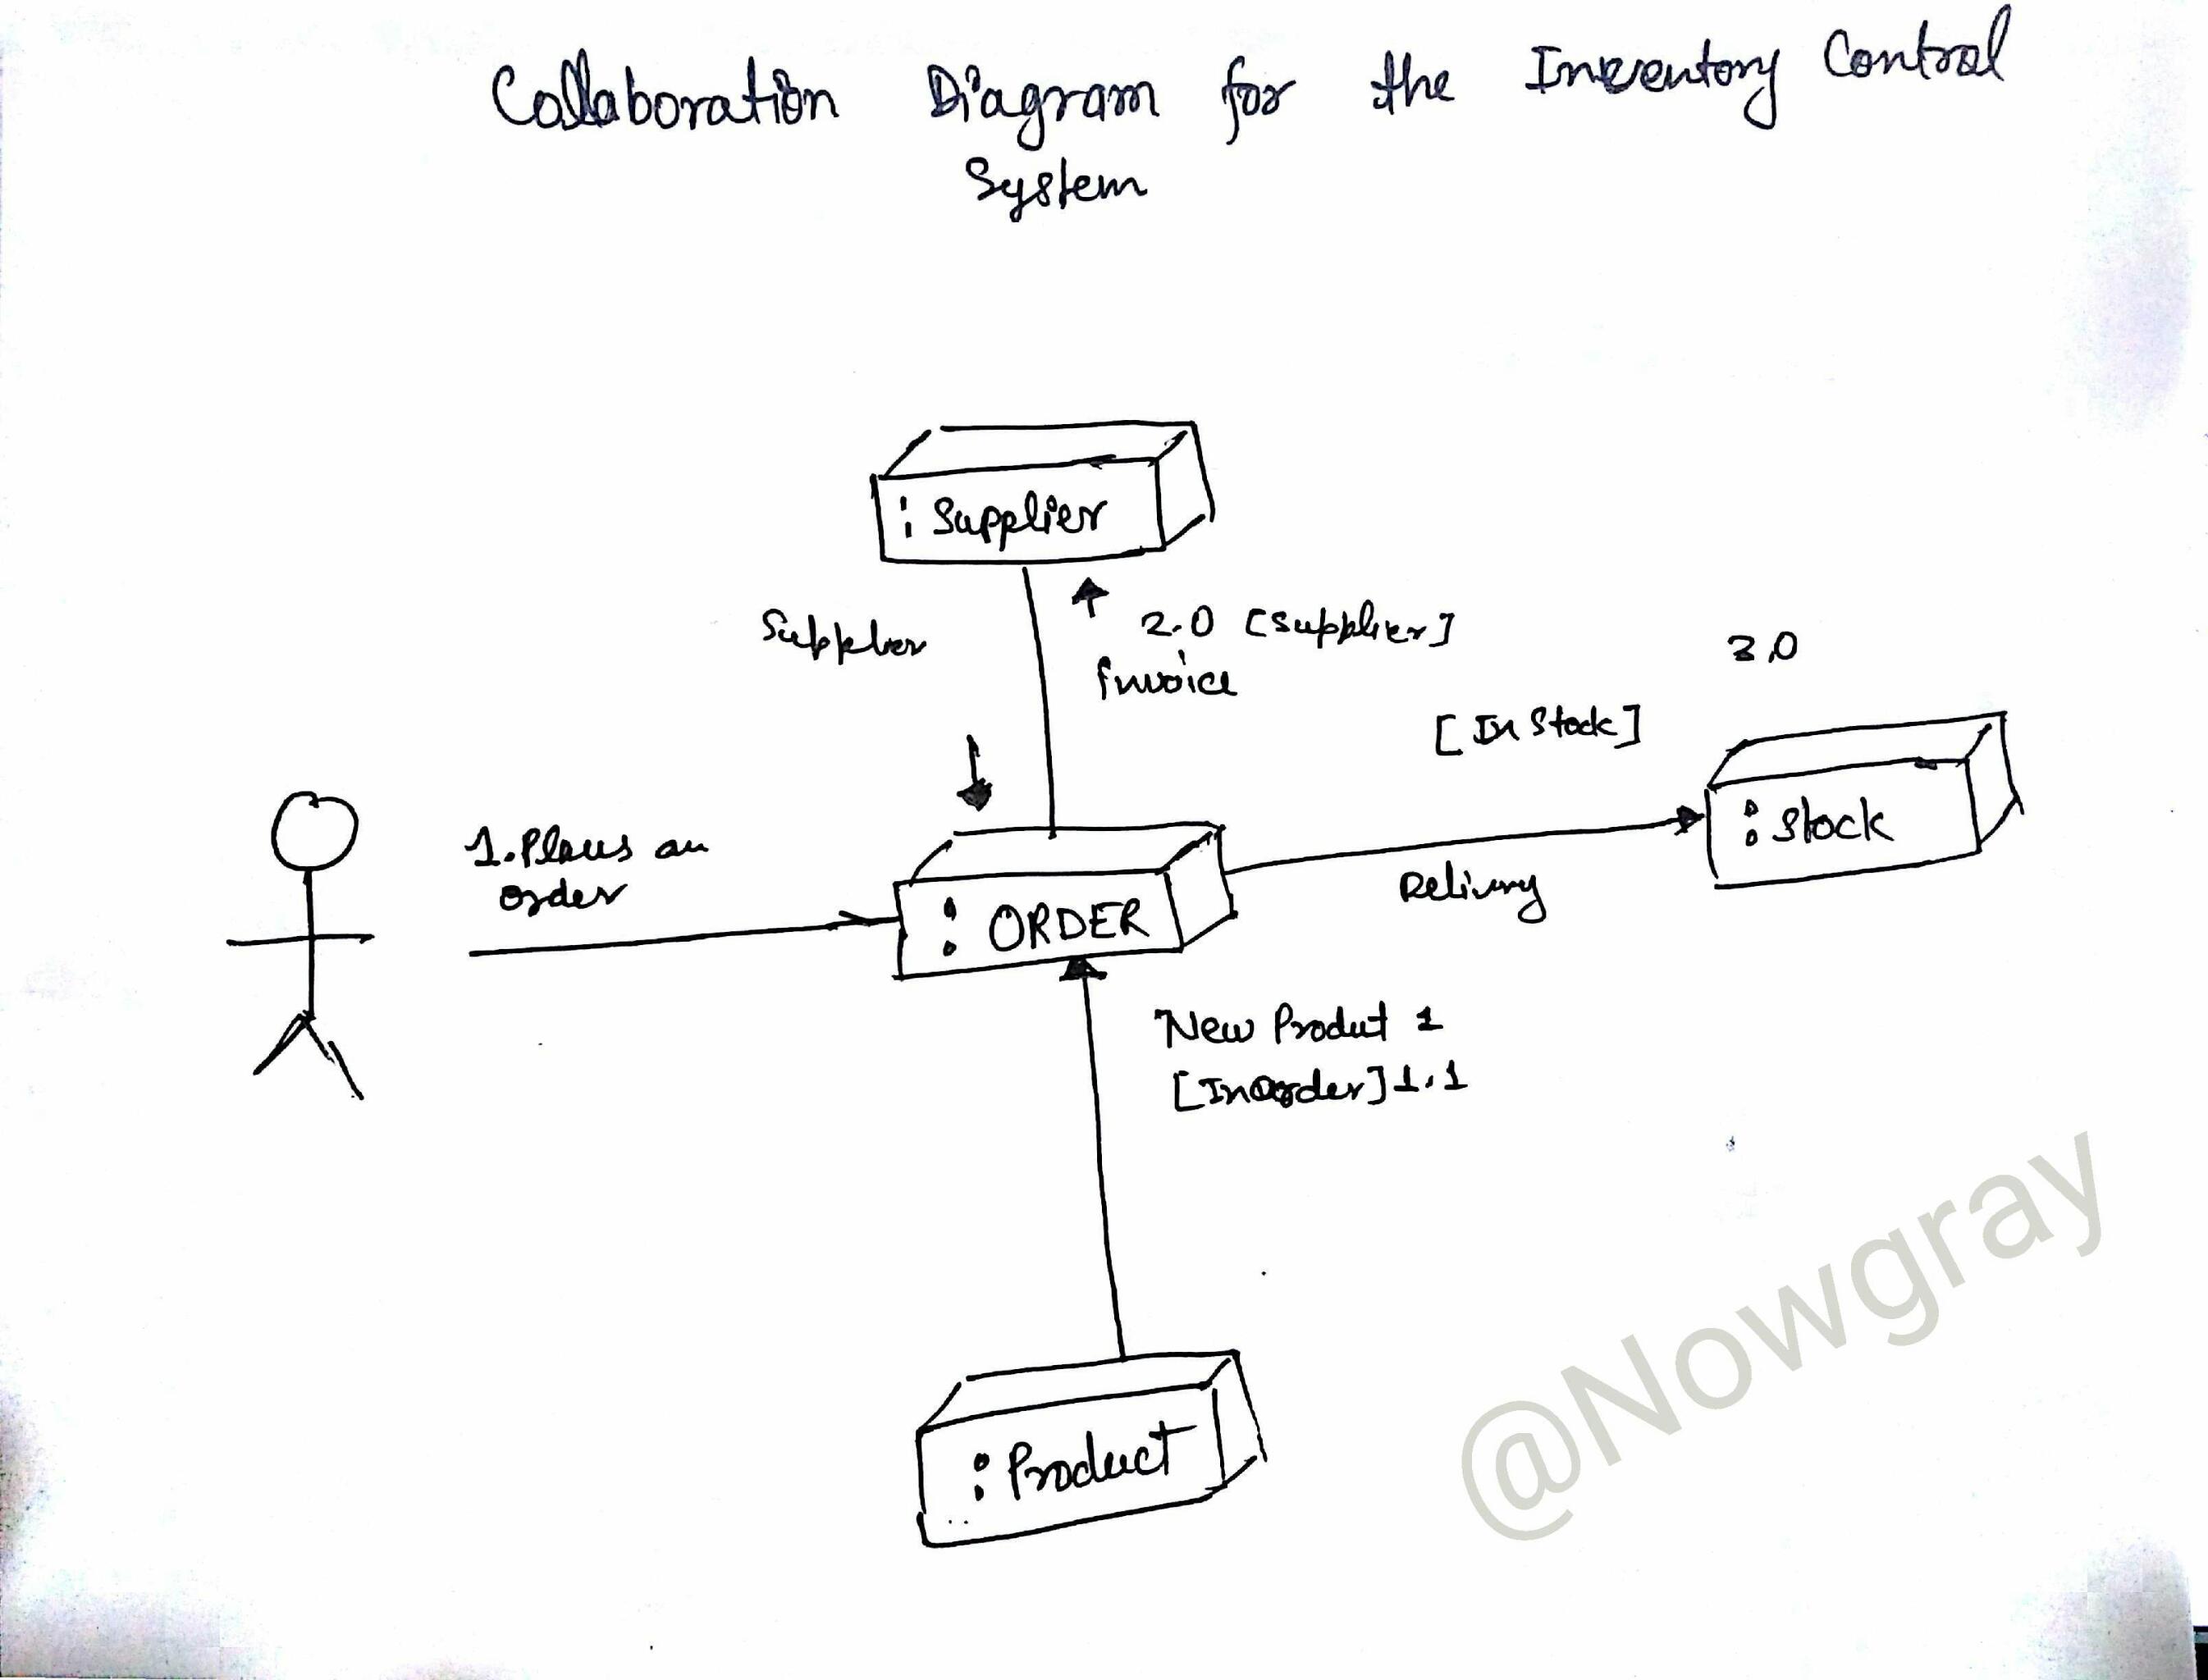 Collaboration Diagram for the Inventory Control
System
: Supplier
Supplier
2.0 [Supplier]
Invoice
3.0
[In Stock]
: Stock
1. Places an
order
: ORDER
Delivery
New Produt 1
[Inorder] 1.1
: Product
@Nowgray